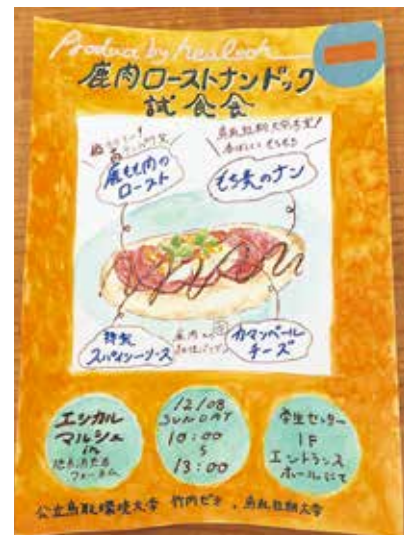 Product by healook
鹿肉ローストナンドック
試食会
鹿もも肉の
ロースト
もち麦のナン
特製
スパイシーソース
鹿肉と
カマンベール
チーズ
エシカル
マルシェ
in
12/08
SUNDAY
10:00
13:00
学生センター
1F
エントランス
ホールにて
公立鳥取環境大学 竹内ゼミ、鳥取短期大学